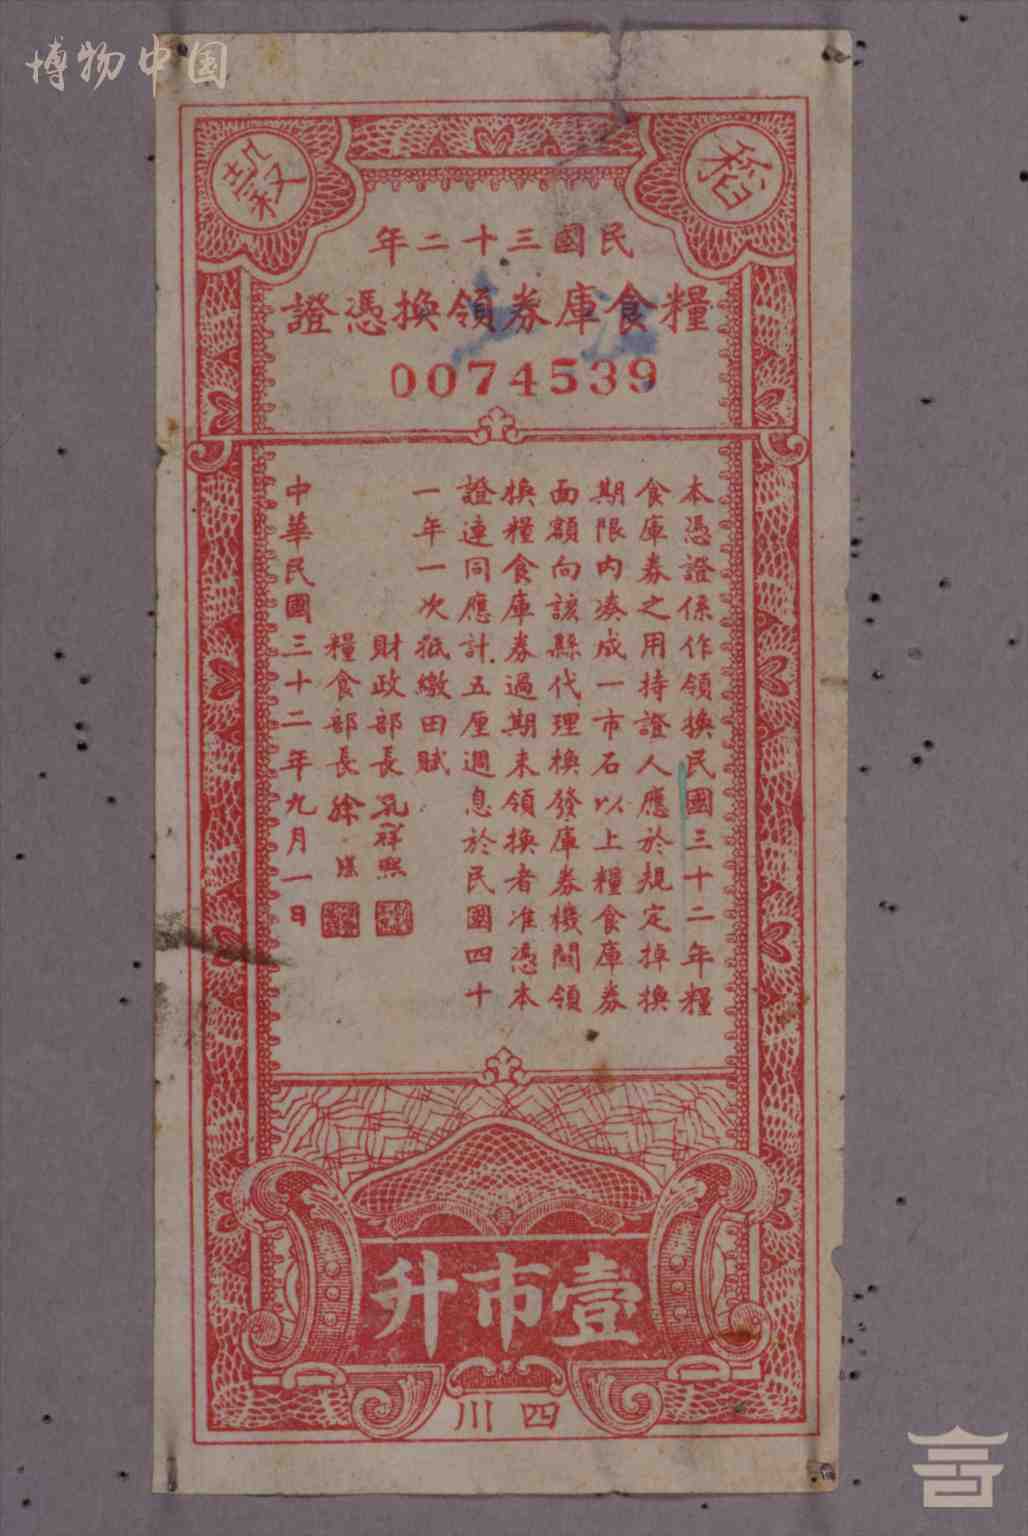 博物中国
稻穀
民國三十二年
糧食庫券領換憑證
0074539
本憑證係作領換民國三十二年糧
食庫券之用持證人應於規定掉換
期限内凑成一市石以上糧食庫券
面額向該縣代理換發庫券機關領
換糧食庫券過期未領換者准憑本
證連同應計五厘週息於民國四十
一年一次抵繳田賦
財政部長孔祥熙
糧食部長徐堪
中華民國三十二年九月一日
壹市升
四川